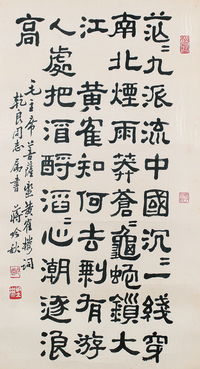 茫二九派流中國沉二一綫穿
南北煙雨莽蒼二龜蛇鎖大
江黃雀知何去剩有游
人處把酒酹滔二心潮逐浪
高
毛主席菩薩蠻黃雀樓詞
乾良同志屬書 蔣吟秋